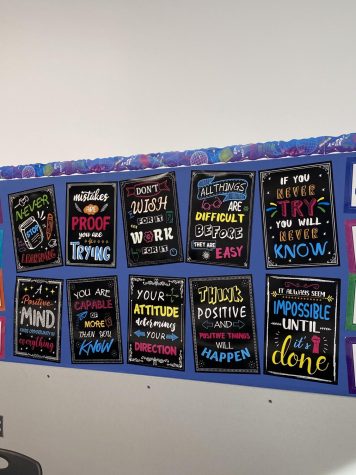 NEVER
STOP
LEARNING
mistakes
ARE
PROOF
you are
TRYING
DON'T
WISH
FOR IT
WORK
FOR IT
ALL THINGS
ARE
DIFFICULT
BEFORE
THEY ARE EASY
IF YOU
NEVER
TRY
YOU WILL
NEVER
KNOW
A
Positive
MIND
everything
YOU ARE
CAPABLE
of
MORE
THAN YOU
KNOW
YOUR
ATTITUDE
determines
YOUR
DIRECTION
THINK
POSITIVE
AND
POSITIVE THINGS
WILL
HAPPEN
IT ALWAYS SEEMS
IMPOSSIBLE
UNTIL
it's
done